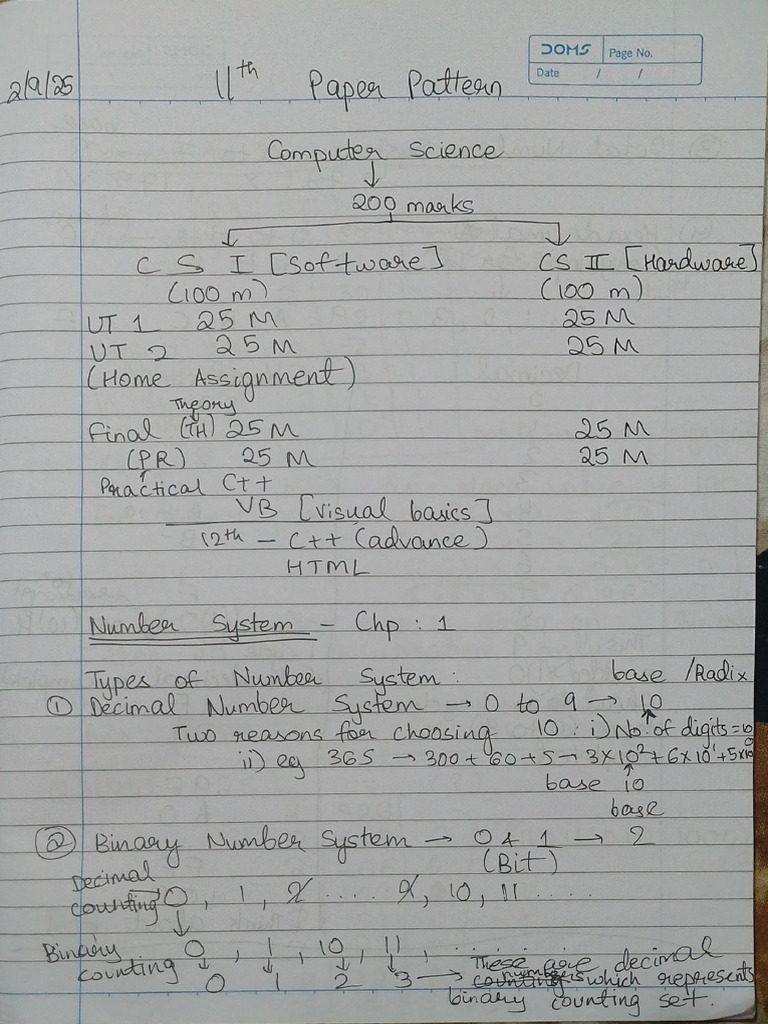 DOMS Page No.
Date / /
2/9/25 11th Paper Pattern
Computer Science
↓
200 marks
CS I [Software] CS II [Hardware]
(100 m) (100 m)
UT 1 25 M 25 M
UT 2 25 M 25 M
(Home Assignment)
Theory
Final (TH) 25 M 25 M
(PR) 25 M 25 M
Practical C++
VB [Visual basics]
12th - C++ (advance)
HTML
Number System - Chp : 1
Types of Number System : base /Radix
① Decimal Number System → 0 to 9 → 10
Two reasons for choosing 10 : i) No. of digits = 10
ii) eg 365 → 300 + 60 + 5 → 3×10² + 6×10¹ + 5×10⁰
base 10
base
② Binary Number System → 0 & 1 → 2
(Bit)
Decimal
counting → 0, 1, 2 .... 9, 10, 11 .....
Binary 0, 1, 10, 11, ....
counting 0 1 2 3 → These are decimal
numbers which represents
binary counting set.